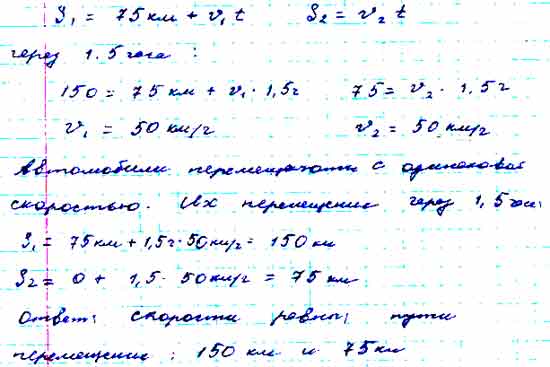 S₁ = 75 км + v₁ t      S₂ = v₂ t
через 1.5 часа :
150 = 75 км + v₁ · 1,5 ч      75 = v₂ · 1,5 ч
v₁ = 50 км/ч      v₂ = 50 км/ч
Автомобили перемещаются с одинаковой
скоростью. Их перемещение через 1,5 часа:
S₁ = 75 км + 1,5 ч · 50 км/ч = 150 км
S₂ = 0 + 1,5 · 50 км/ч = 75 км
Ответ: скорости равны, пути
перемещение : 150 км и 75 км